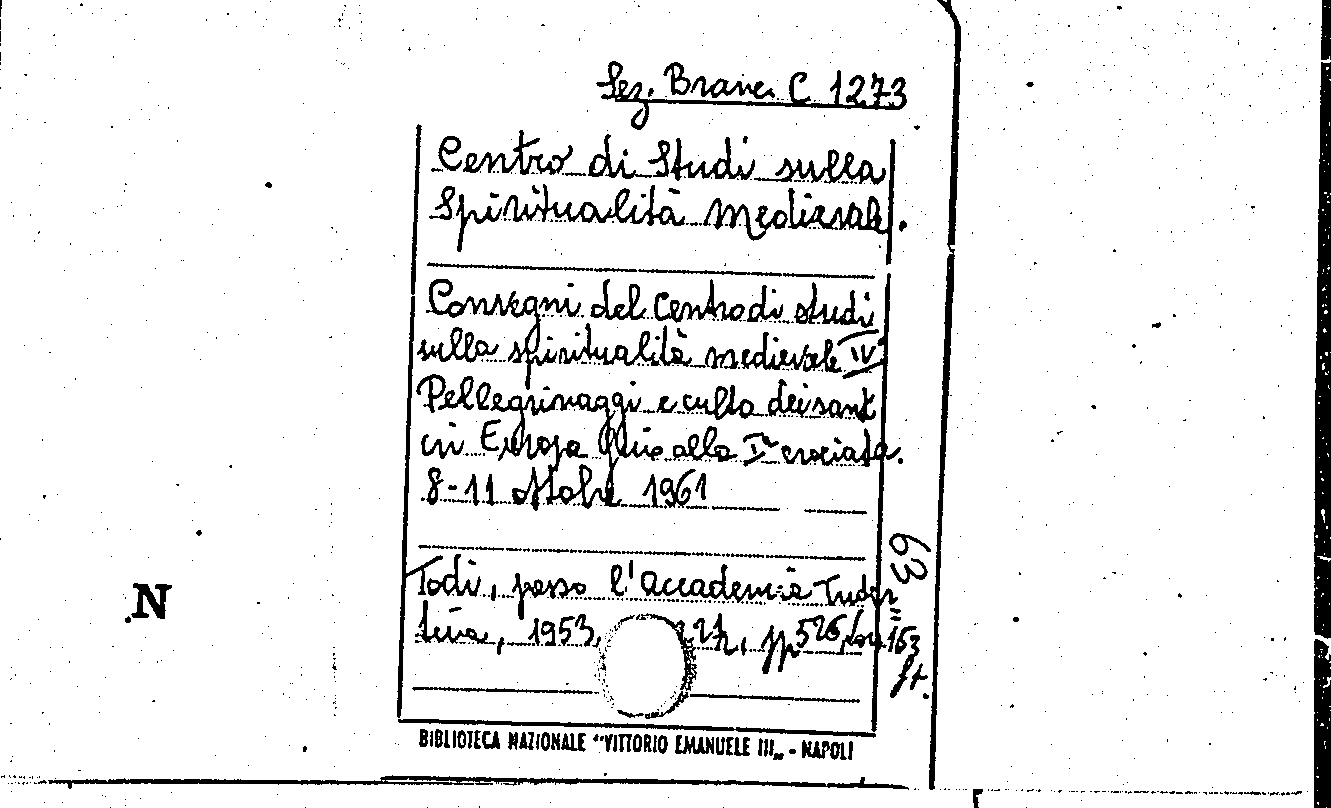 Sez. Branc. C 1273
Centro di Studi sulla
Spiritualità medievale.
Convegni del Centro di studi
sulla spiritualità medievale IV
Pellegrinaggi e culto dei sant
in Europa fino alla Iª crociata.
8-11 ottobre 1961
63
Todi, presso l'Accademia Tuder
tina, 1953, pp 526,
163
N
BIBLIOTECA NAZIONALE "VITTORIO EMANUELE III„ - NAPOLI